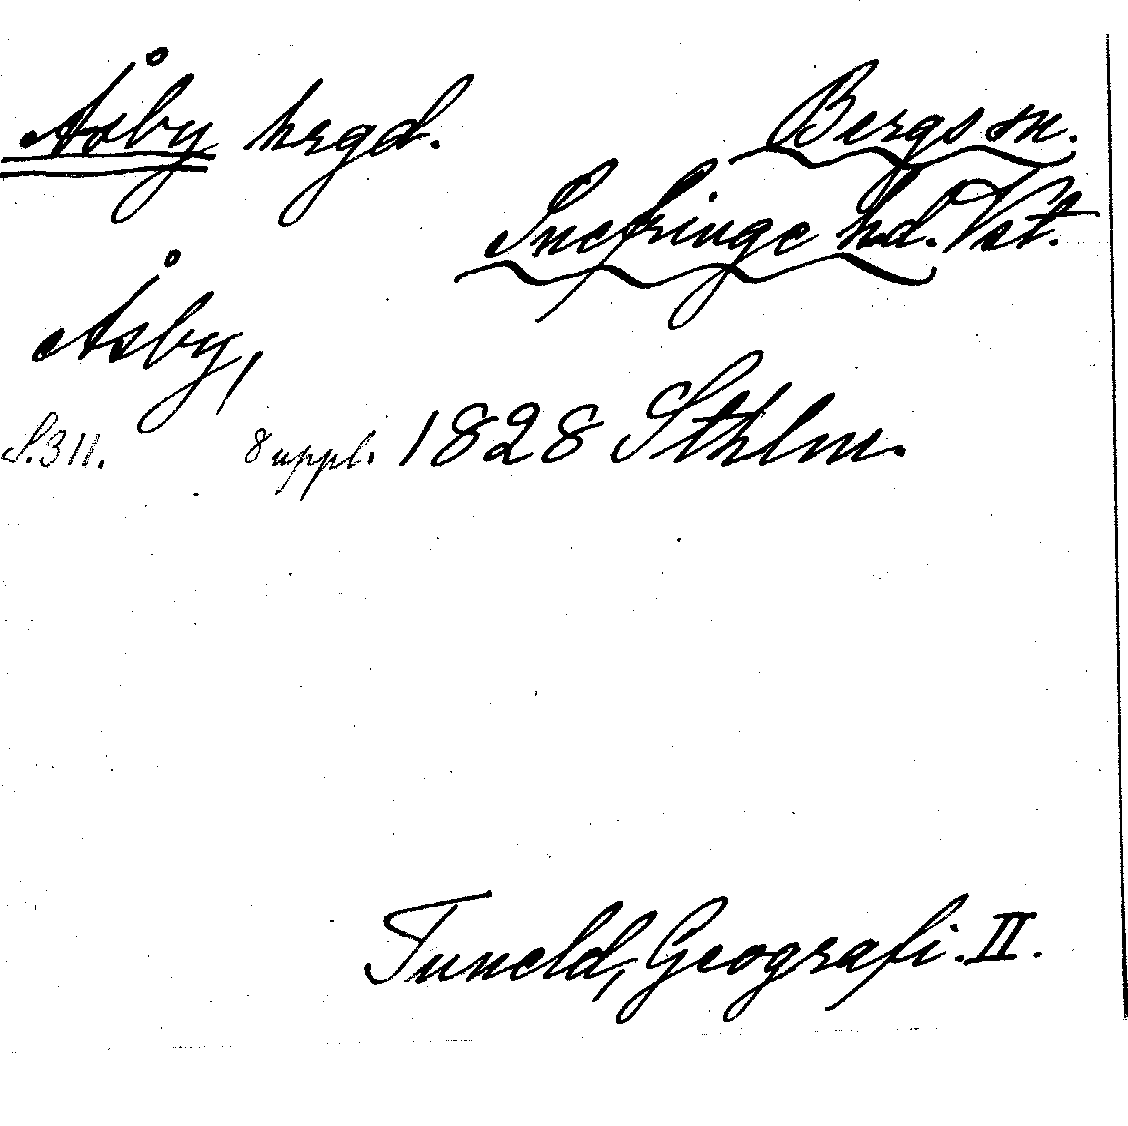 Åsby hrgd. Bergs sn.
Snefringe hd. Vst.
Åsby,
S. 311. 8 uppl. 1828 Sthlm.
Tuneld, Geografi. II.